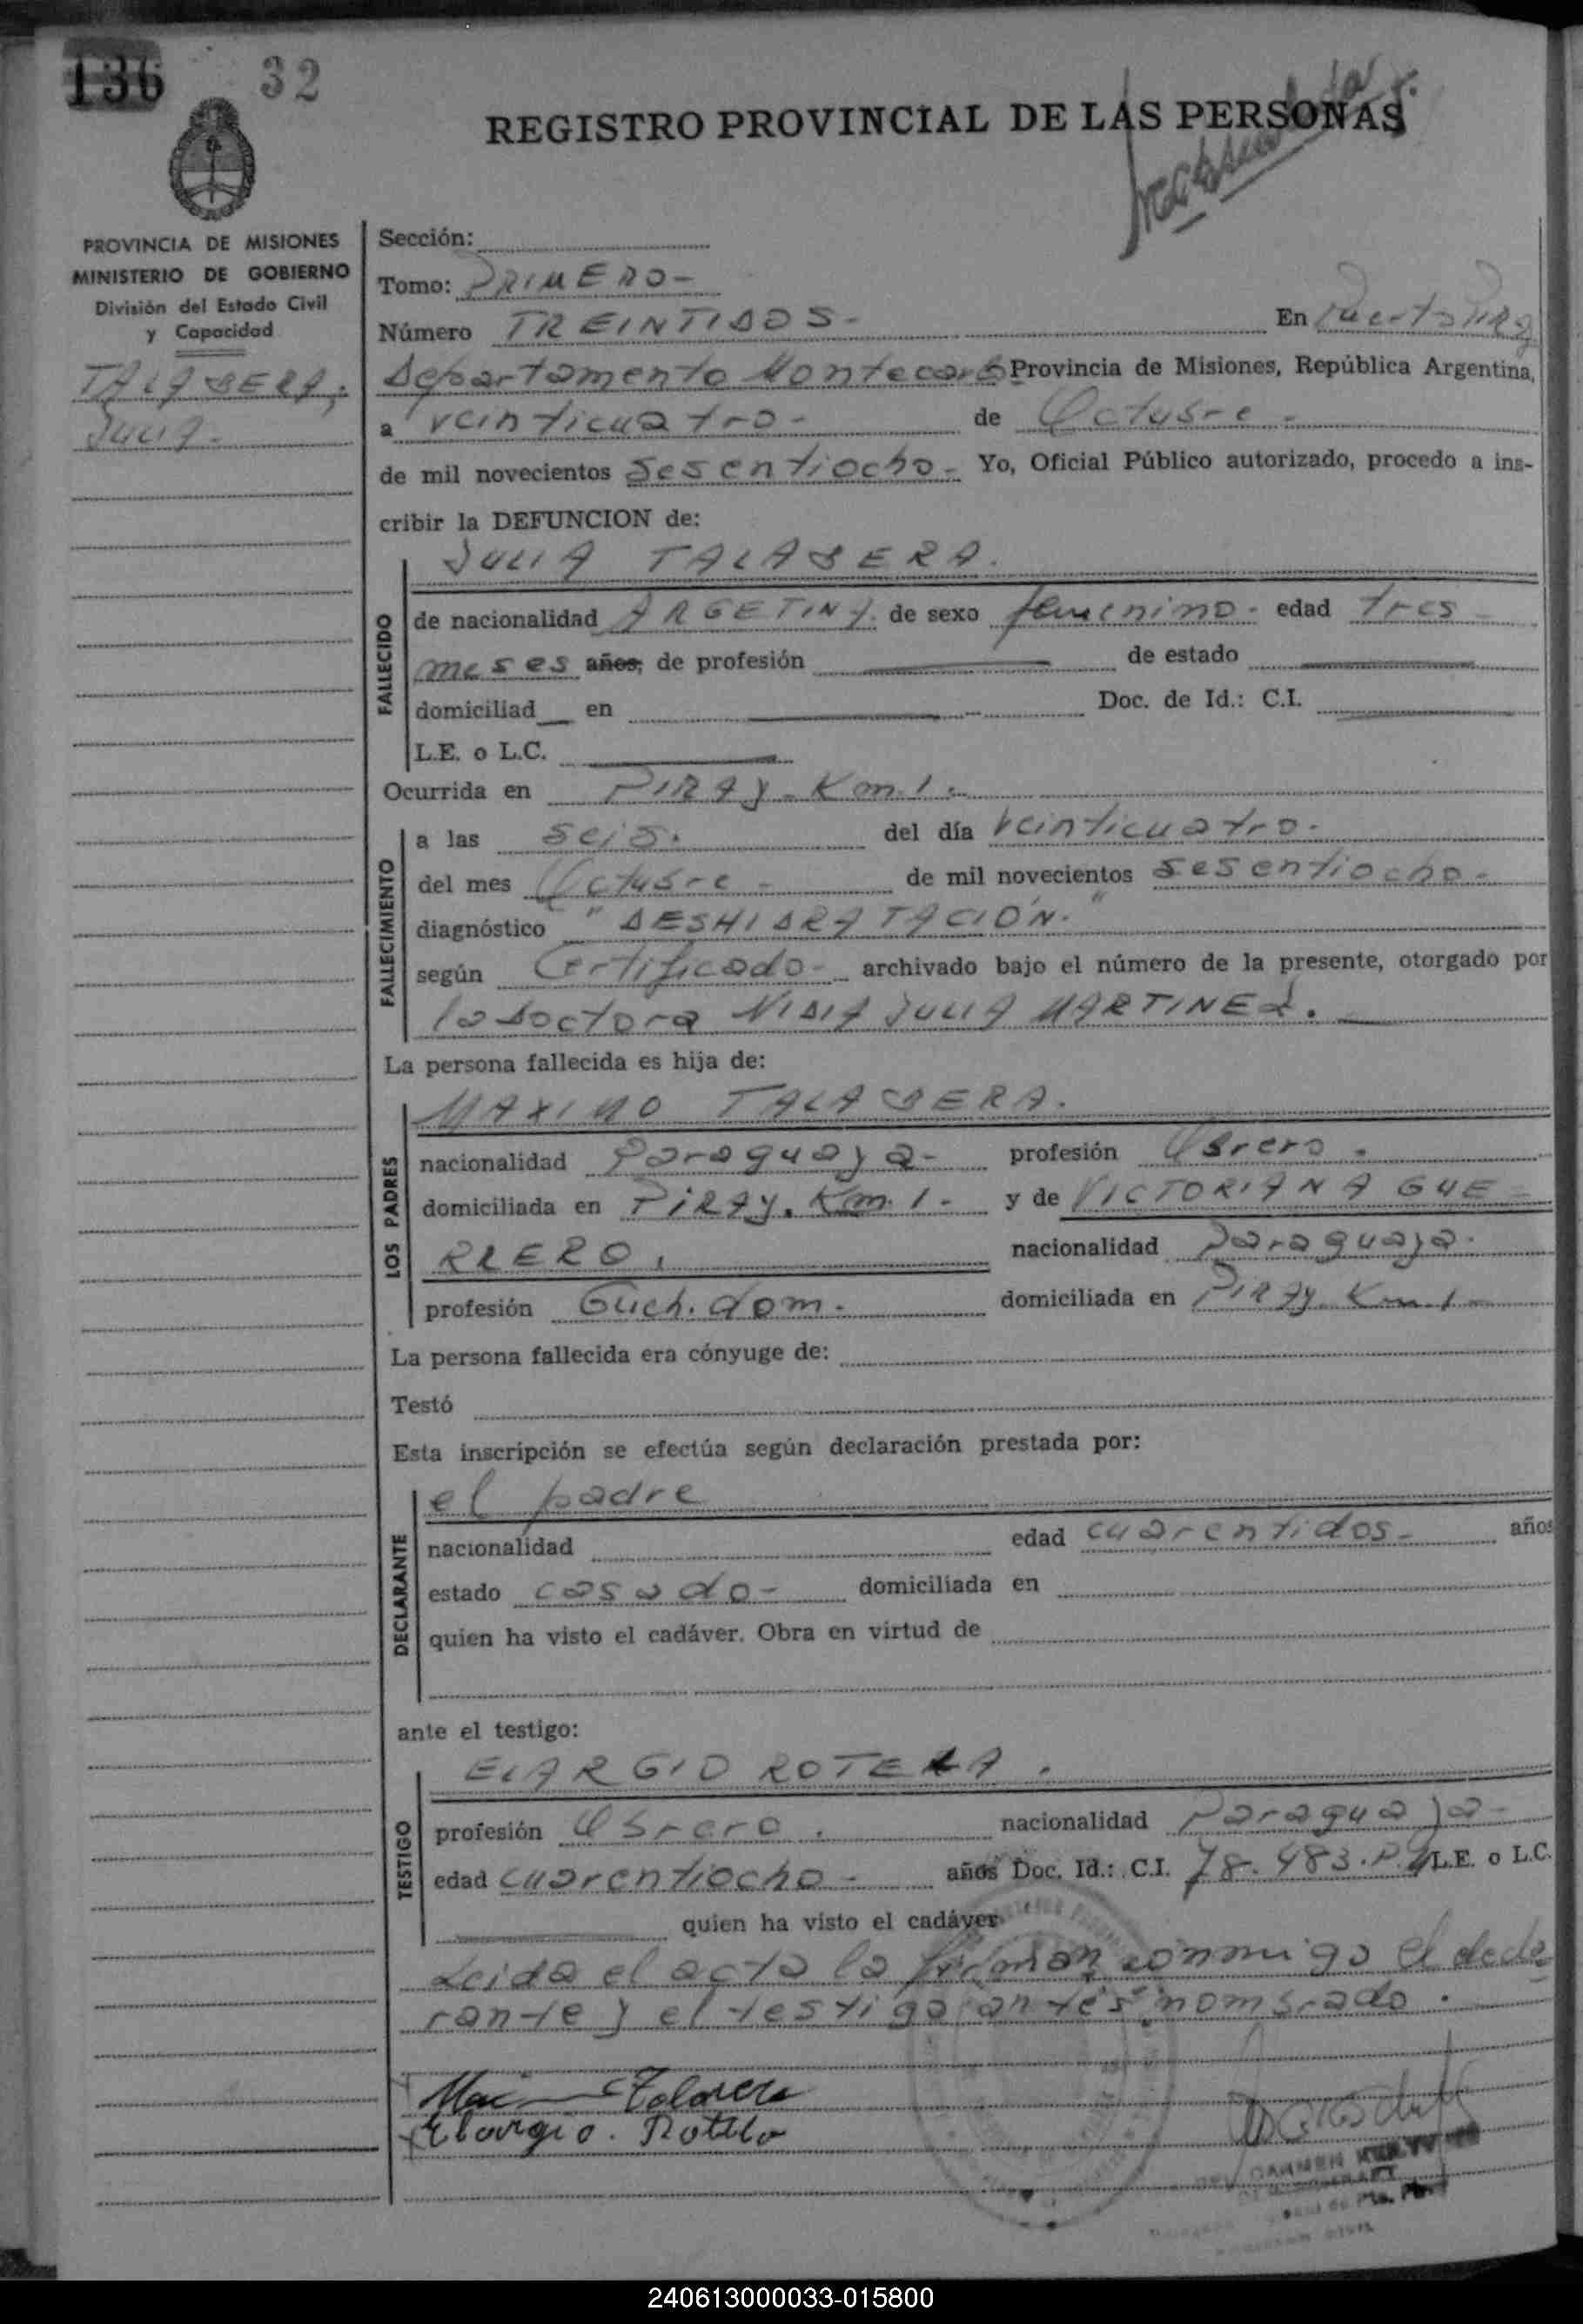 136 32
REGISTRO PROVINCIAL DE LAS PERSONAS
PROVINCIA DE MISIONES
MINISTERIO DE GOBIERNO
División del Estado Civil
y Capacidad
TALABERA,
Julia.
Sección:
Tomo: PRIMERO-
Número TREINTIDOS- En Puerto Piray
Departamento Montecarlo Provincia de Misiones, República Argentina,
a veinticuatro- de Octubre-
de mil novecientos sesentiocho- Yo, Oficial Público autorizado, procedo a ins-
cribir la DEFUNCION de:
JULIA TALABERA.
FALLECIDO
de nacionalidad ARGETINA. de sexo femenino- edad tres
meses años; de profesión de estado
domiciliad en Doc. de Id.: C.I.
L.E. o L.C.
Ocurrida en PIRAY- Km. 1.
FALLECIMIENTO
a las seis. del día veinticuatro-
del mes Octubre- de mil novecientos sesentiocho-
diagnóstico "DESHIDRATACIÓN."
según Certificado- archivado bajo el número de la presente, otorgado por
la doctora NIDIA JULIA MARTINEZ.
La persona fallecida es hija de:
LOS PADRES
MAXIMO TALABERA.
nacionalidad Paraguaya- profesión Obrero.
domiciliada en PIRAY. Km. 1- y de VICTORIANA GUE-
RRERO, nacionalidad Paraguaya.
profesión Queh. dom. domiciliada en PIRAY. Km. 1-
La persona fallecida era cónyuge de:
Testó
Esta inscripción se efectúa según declaración prestada por:
DECLARANTE
el padre
nacionalidad edad cuarentidos- años
estado casado- domiciliada en
quien ha visto el cadáver. Obra en virtud de
ante el testigo:
TESTIGO
ELARGIO ROTELA.
profesión Obrero. nacionalidad Paraguaya-
edad cuarentiocho- años Doc. Id.: C.I. 78.483.P.y L.E. o L.C.
quien ha visto el cadáver
Leida el acta la firman conmigo el decla
rante y el testigo antes nombrado.
Elargio. Rotela
DEL CARMEN
240613000033-015800